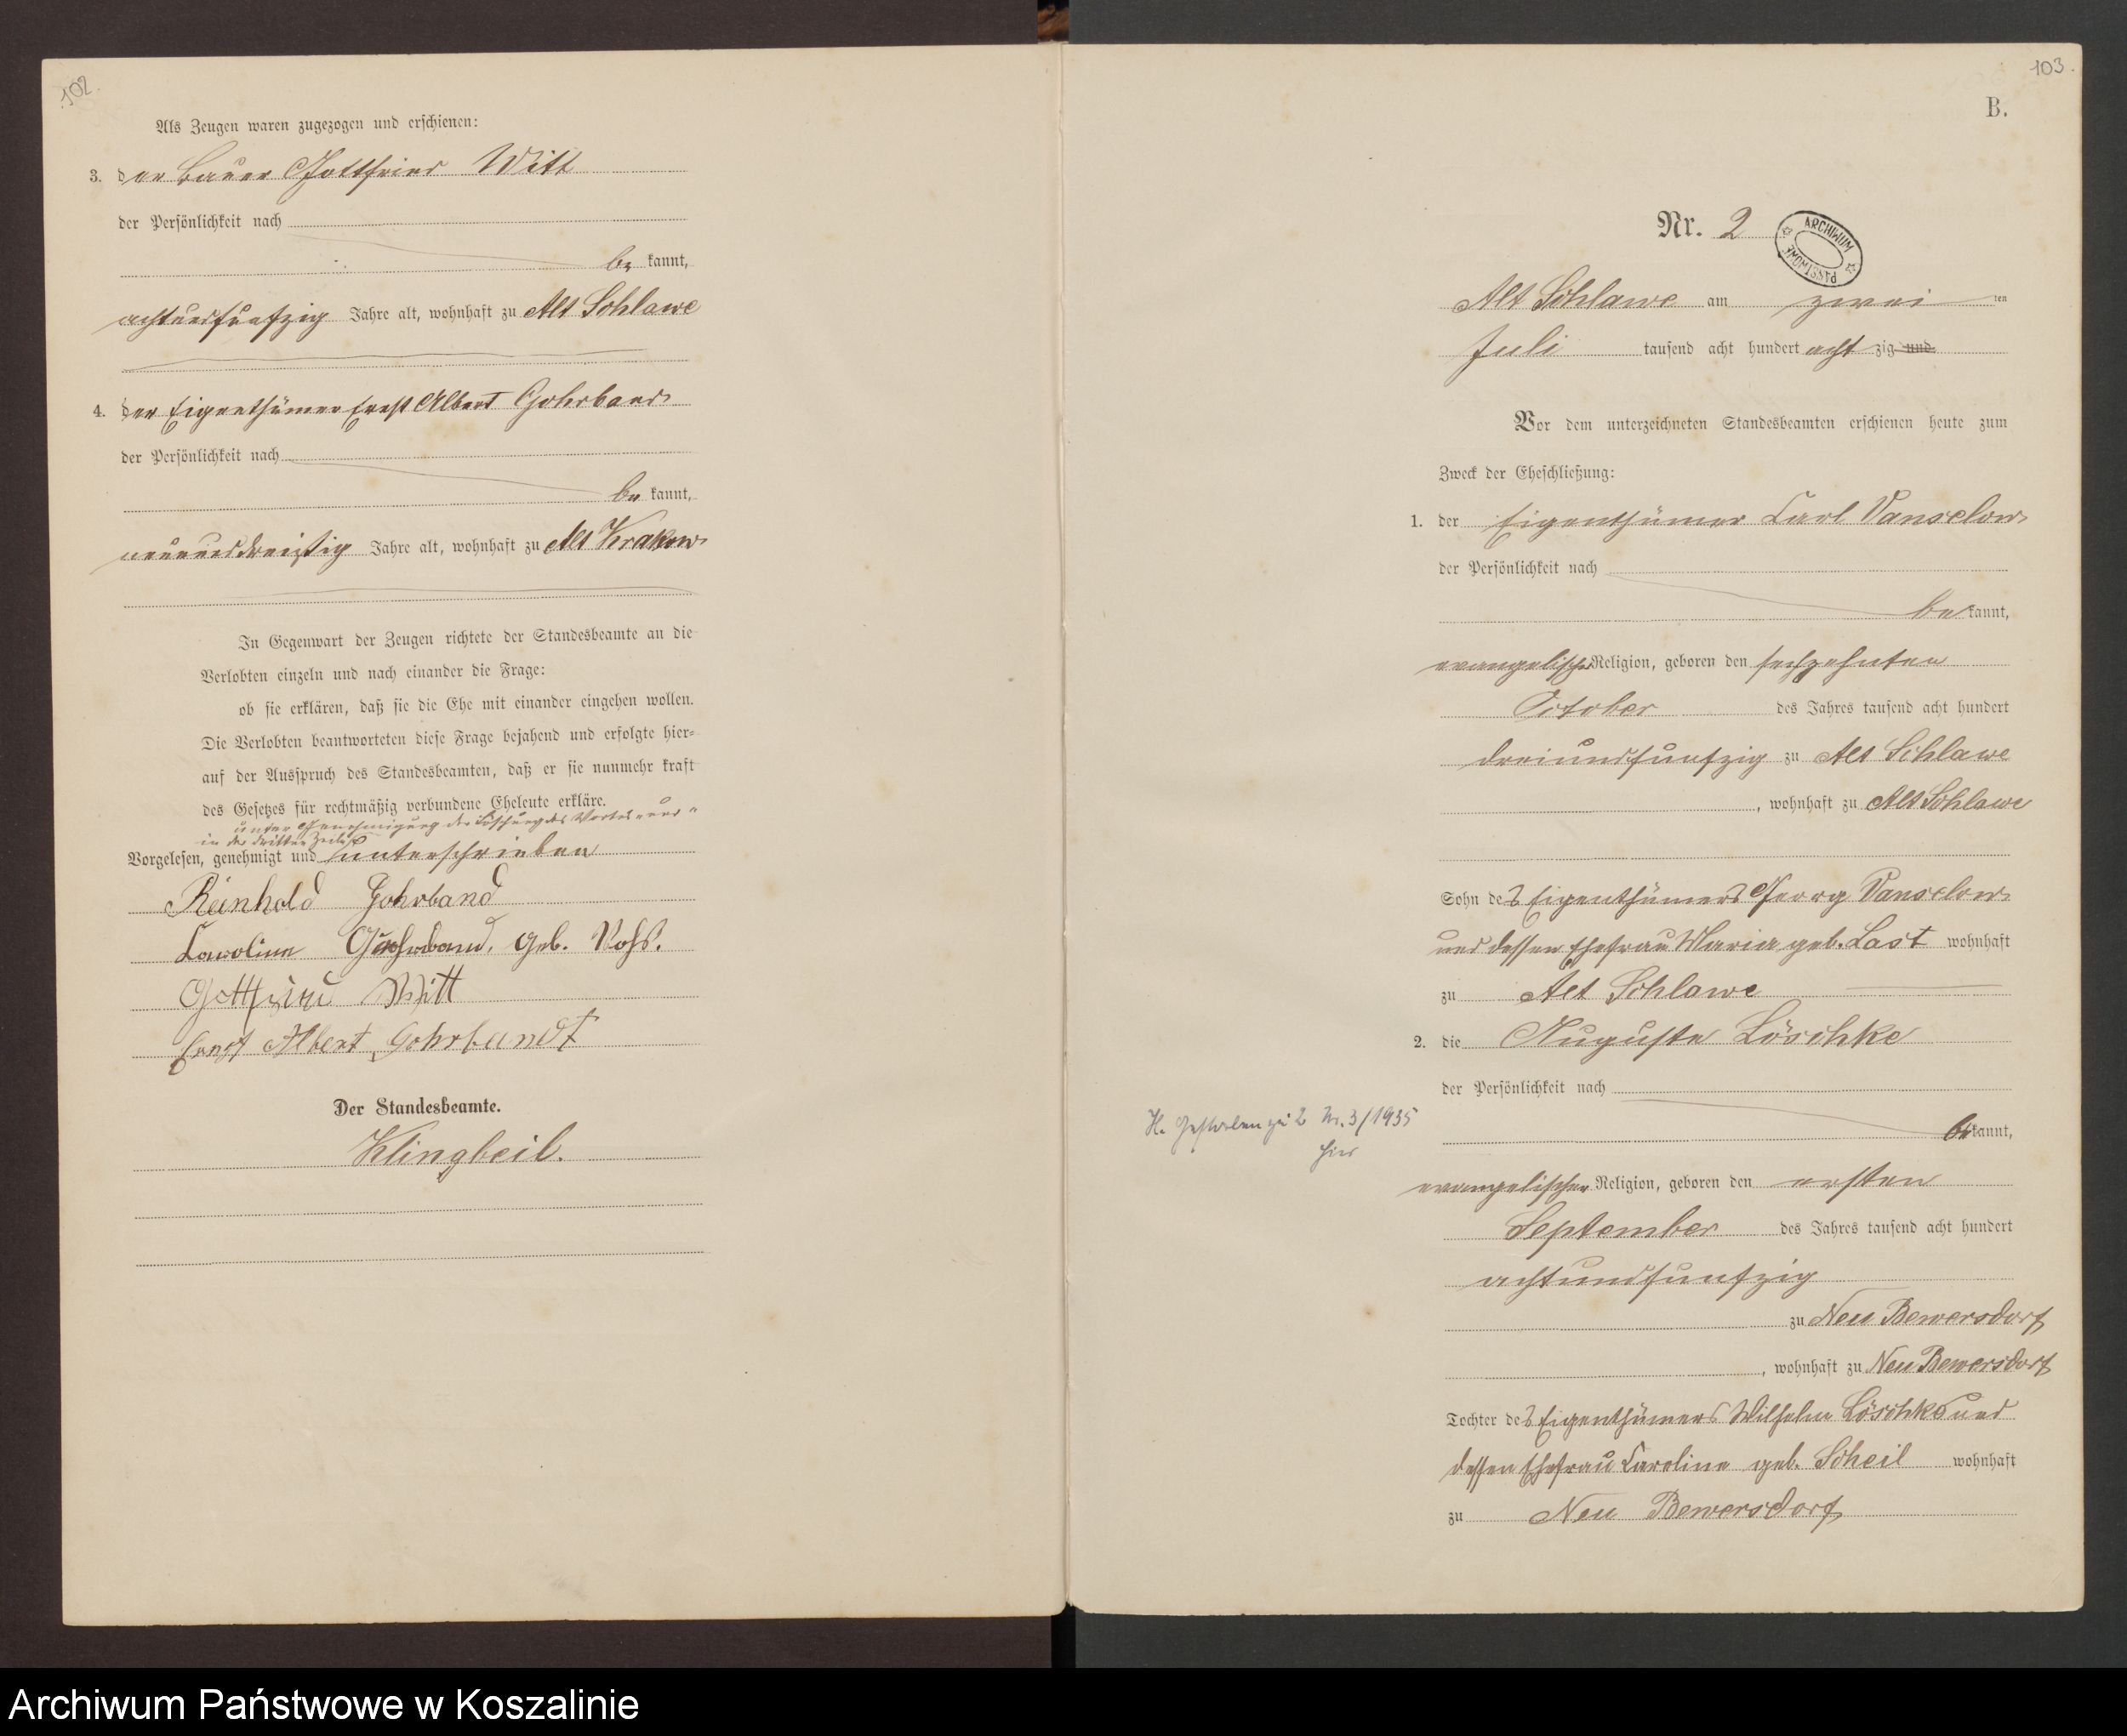 102.
Als Zeugen waren zugezogen und erschienen:
3. der Bauer Gottfried Witt
der Persönlichkeit nach
be kannt,
achtundfunfzig Jahre alt, wohnhaft zu Alt Schlawe
4. der Eigenthümer Ernst Albert Gohrband
der Persönlichkeit nach
be kannt,
neununddreißig Jahre alt, wohnhaft zu Alt Krakow
In Gegenwart der Zeugen richtete der Standesbeamte an die
Verlobten einzeln und nach einander die Frage:
ob sie erklären, daß sie die Ehe mit einander eingehen wollen.
Die Verlobten beantworteten diese Frage bejahend und erfolgte hier-
auf der Ausspruch des Standesbeamten, daß er sie nunmehr kraft
des Gesetzes für rechtmäßig verbundene Eheleute erkläre.
unter Genehmigung der Löschung des Wortes „und"
in der dritten Zeile
Vorgelesen, genehmigt und unterschrieben
Reinhold Gohrband
Caroline Gohrband, geb. Vohs.
Gottfried Witt
Ernst Albert Gohrbandt
Der Standesbeamte.
Klingbeil.
103.
B.
Nr. 2
ARCHIWUM
Alt Schlawe am zwei ten
Juli tausend acht hundert acht zig und
Vor dem unterzeichneten Standesbeamten erschienen heute zum
Zweck der Eheschließung:
1. der Eigenthümer Carl Vanselow
der Persönlichkeit nach
be kannt,
evangelischer Religion, geboren den sechzehnten
October des Jahres tausend acht hundert
dreiundfunfzig zu Alt Schlawe
, wohnhaft zu Alt Schlawe
Sohn des Eigenthümers Georg Vanselow
und dessen Ehefrau Maria geb. Last wohnhaft
zu Alt Schlawe
2. die Auguste Löschke
der Persönlichkeit nach
H. Gestorben zu 2 Nr. 3/1935
hier
be kannt,
evangelischer Religion, geboren den ersten
September des Jahres tausend acht hundert
achtundfunfzig
zu Neu Bewersdorf
, wohnhaft zu Neu Bewersdorf
Tochter des Eigenthümers Wilhelm Löschke und
dessen Ehefrau Caroline geb. Scheil wohnhaft
zu Neu Bewersdorf
Archiwum Państwowe w Koszalinie